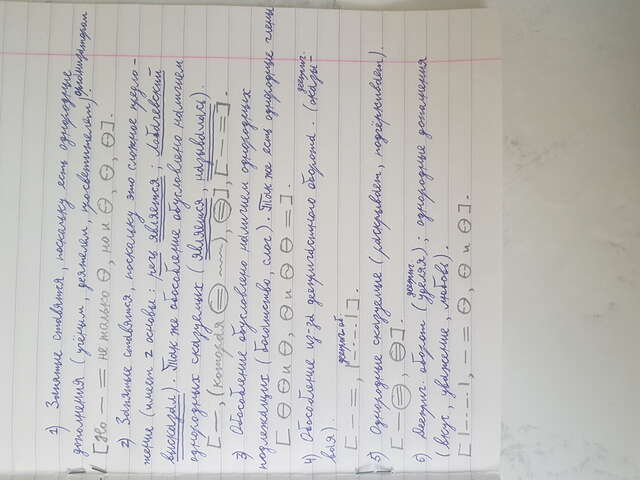 1) Запятые ставятся, поскольку есть однородные
дополнения (учёным, деятелем, просветителем, организатором).
[Но — = не только ⊖, но и ⊖, ⊖, ⊖].
2) Запятые ставятся, поскольку это сложное предло-
жение (имеет 2 основы: речь является; Лобачевский
высказал). Так же обособление обусловлено наличием
однородных сказуемых (является, называлась).
[—, (которая ⊜ ~~~), ⊜], [— =].
3) Обособление обусловлено наличием однородных
подлежащих (богатство, слог). Так же есть однородные члены
[⊖ ⊖ и ⊖, ⊖ и ⊖ ⊖ =].
4) Обособление из-за деепричастного оборота. (оказы-
деепричг.
вая).
дееприч. об.
[— =, |—·—·|].
5) Однородные сказуемые (раскрывает, подчёркивает).
[— ⊜, ⊜].
6) Дееприч. оборот (уделяя); однородные дополнения
дееприч
(вкус, уважение, любовь).
[|—·—·|, — = ⊖, ⊖ и ⊖].